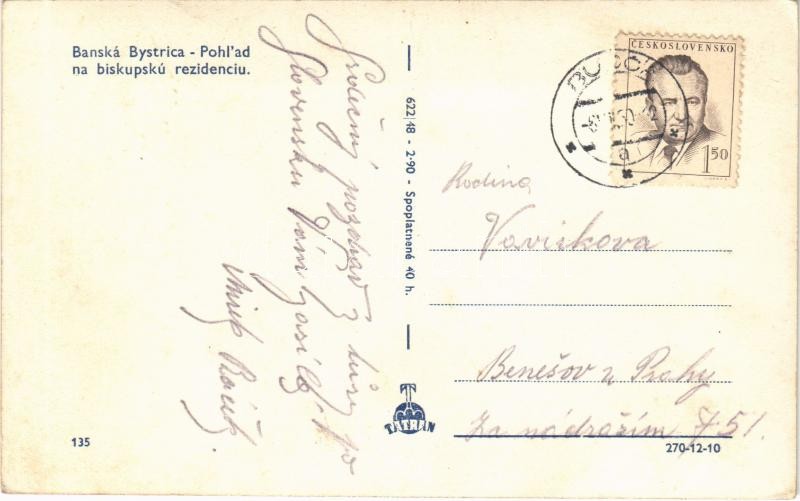 Banská Bystrica - Pohľad
na biskupskú rezidenciu.
Srdečný pozdrav z túry po
Slovensku Vám zasílá
622/48 - 2·90 - Spoplatnené 40 h.
ČESKOSLOVENSKO
1 50
Rodina
Vavirkova
Benešov u Prahy
Za nádražím 751.
TATRAN
135
270-12-10